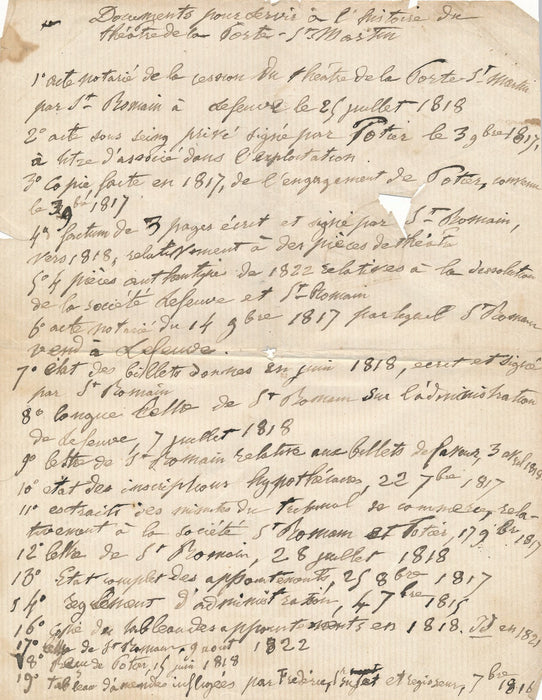 Documents pour servir à l'histoire du
théâtre de la Porte-St-Martin
1° acte notarié de la cession du théâtre de la Porte-St-Martin
par St-Romain à Lefeuve le 25 juillet 1818
2° acte sous seing privé signé par Potier le 3 9bre 1817,
à titre d'associé dans l'exploitation.
3° copie, faite en 1817, de l'engagement de Potier, convenu
le 3 9bre 1817
4° factum de 3 pages écrit et signé par St-Romain,
vers 1818, relativement à des pièces de théâtre
5° 4 pièces authentiques de 1822 relatives à la dissolution
de la société Lefeuve et St-Romain
6° acte notarié du 14 9bre 1817 par lequel St Romain
vend à Lefeuve.
7° état des billets donnés en juin 1818, écrit et signé
par St Romain
8° longue lettre de St Romain sur l'administration
de Lefeuve, 7 juillet 1818
9° lettre de St-Romain relative aux billets de faveur, 3 avril 1818
10° état des inscriptions hypothécaires, 22 7bre 1817
11° extraits des minutes du tribunal de commerce, rela-
tivement à la société St Romain et Potier, 17 9bre 1817
12° lettre de St Romain, 28 juillet 1818
13° Etat complet des appointements, 25 8bre 1817
14° règlement d'administration, 4 7bre 1815
16° des tableaux des appointements en 1818. Id en 1821
17° lettre de St-Romain, 9 aout 1822
18° de Potier, 15 juin 1818
19° tableau d'amendes infligées par Frédéric, et régisseur, 7bre 1816